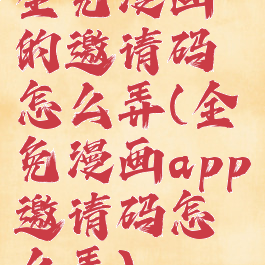 全免漫画
的邀请码
怎么弄(全
免漫画app
邀请码怎
么弄)